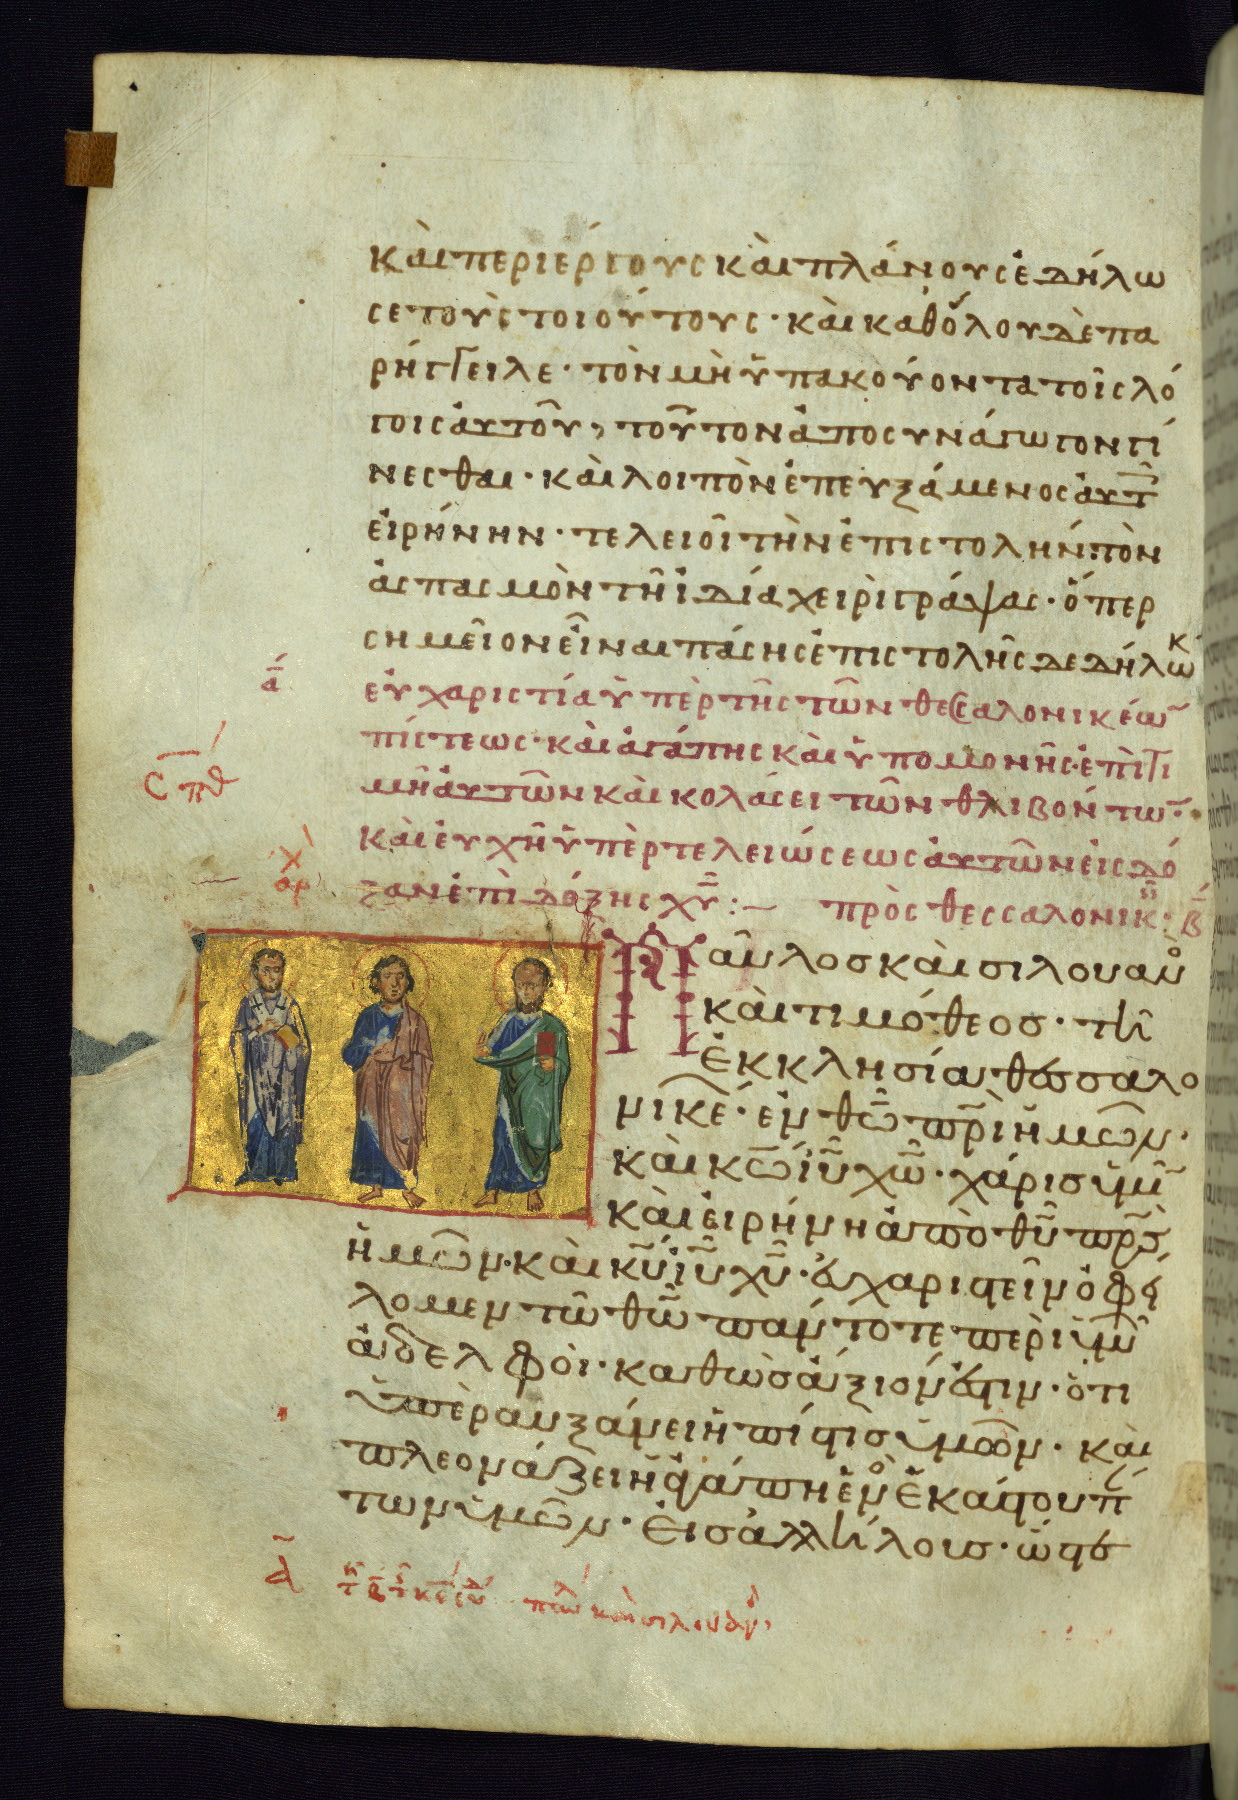 καὶ περιέργους καὶ πλάνους ἐδήλω
σε τοὺς τοιούτους· καὶ καθόλου δὲ πα
ρήγγειλε· τὸν μὴ ὑπακούοντα τοῖς λό
γοις αὐτοῦ, τοῦτον ἀποσυνάγωγον γί
νεσθαι· καὶ λοιπὸν ἐπευξάμενος αὐτ
εἰρήνην· τελειοῖ τὴν ἐπιστολήν· τὸν
ἀσπασμὸν τῇ ἰδίᾳ χειρὶ γράψας· ὅπερ
σημεῖον εἶναι πάσης ἐπιστολῆς δεδήλωκ
ᾱ εὐχαριστία ὑπὲρ τῆς τῶν θεσσαλονικέω̃
πίστεως· καὶ ἀγάπης καὶ ὑπομονῆς· ἐπὶ τι
μῇ αὐτῶν καὶ κολάσει τῶν θλιβόντω̃·
καὶ εὐχὴ ὑπὲρ τελειώσεως αὐτῶν εἰς δό
ξαν ἐπὶ δόξης χῡ:— πρὸς θεσσαλονικ· β̄
Παῦλος καὶ σιλουαν̊
καὶ τιμόθεος· τῆ
ἐκκλησία θεσσαλο
νικέ· ἐν θῶ πρ̄ὶ ἡμῶν·
καὶ κῶ ἰῦ χῶ· χάρις ὑμῖ
καὶ εἰρήνη ἀπὸ θῦ πρ̄ς
ἡμῶν· καὶ κῦ ἰῦ χῦ· εὐχαριστεῖν ὀφεί
λομεν τῶ θῶ πάντοτε περὶ ὑμῶ
ἀδελφοὶ· καθὼς ἄξιόν ἐστιν· ὅτι
ὑπεραυξάνει ἡ πίστις ὑμῶν· καὶ
πλεονάζει ἡ ἀγάπη ἑνὸ ἑκάστου π
των ὑμῶν· εἰς ἀλλήλοις· ὥστε